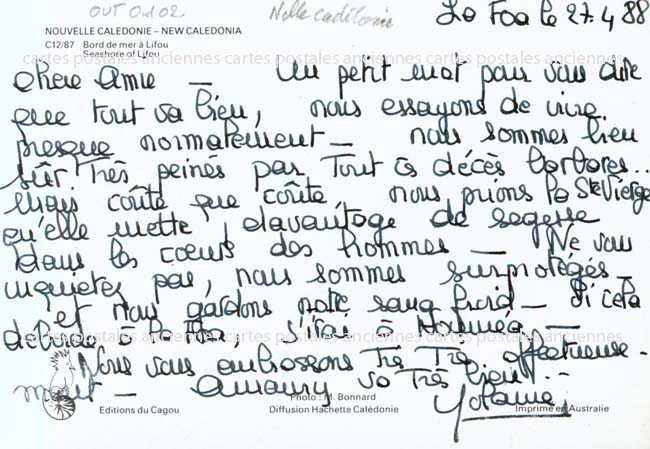 OUT 0102
Nlle calédonie
La Foa le 27.4.88
NOUVELLE CALEDONIE - NEW CALEDONIA
C12/87 Bord de mer à Lifou
Seashore of Lifou
cartes postales anciennes cartes postales anciennes cartes postales anciennes
chere Amie _ Un petit mot pour vous dire
que tout va bien, nous essayons de vivre
presque normalement _ nous sommes bien
sûr très peinés par tout ces décès barbares..
Mais coûte que coûte, nous prions la Ste Vierge
qu'elle mette davantage de sagesse
dans les cœurs des hommes _ Ne vous
inquietez pas, nous sommes surprotégés _
et nous gardons notre sang froid _ Si cela
à la Foa, j'irai à Nouméa _
cartes postales anciennes cartes postales anciennes cartes postales anciennes
Nous vous embrassons Très Très affectueuse-
ment _ Amaury va Très bien...
Yolaine
Photo : M. Bonnard
Editions du Cagou Diffusion Hachette Calédonie Imprimé en Australie